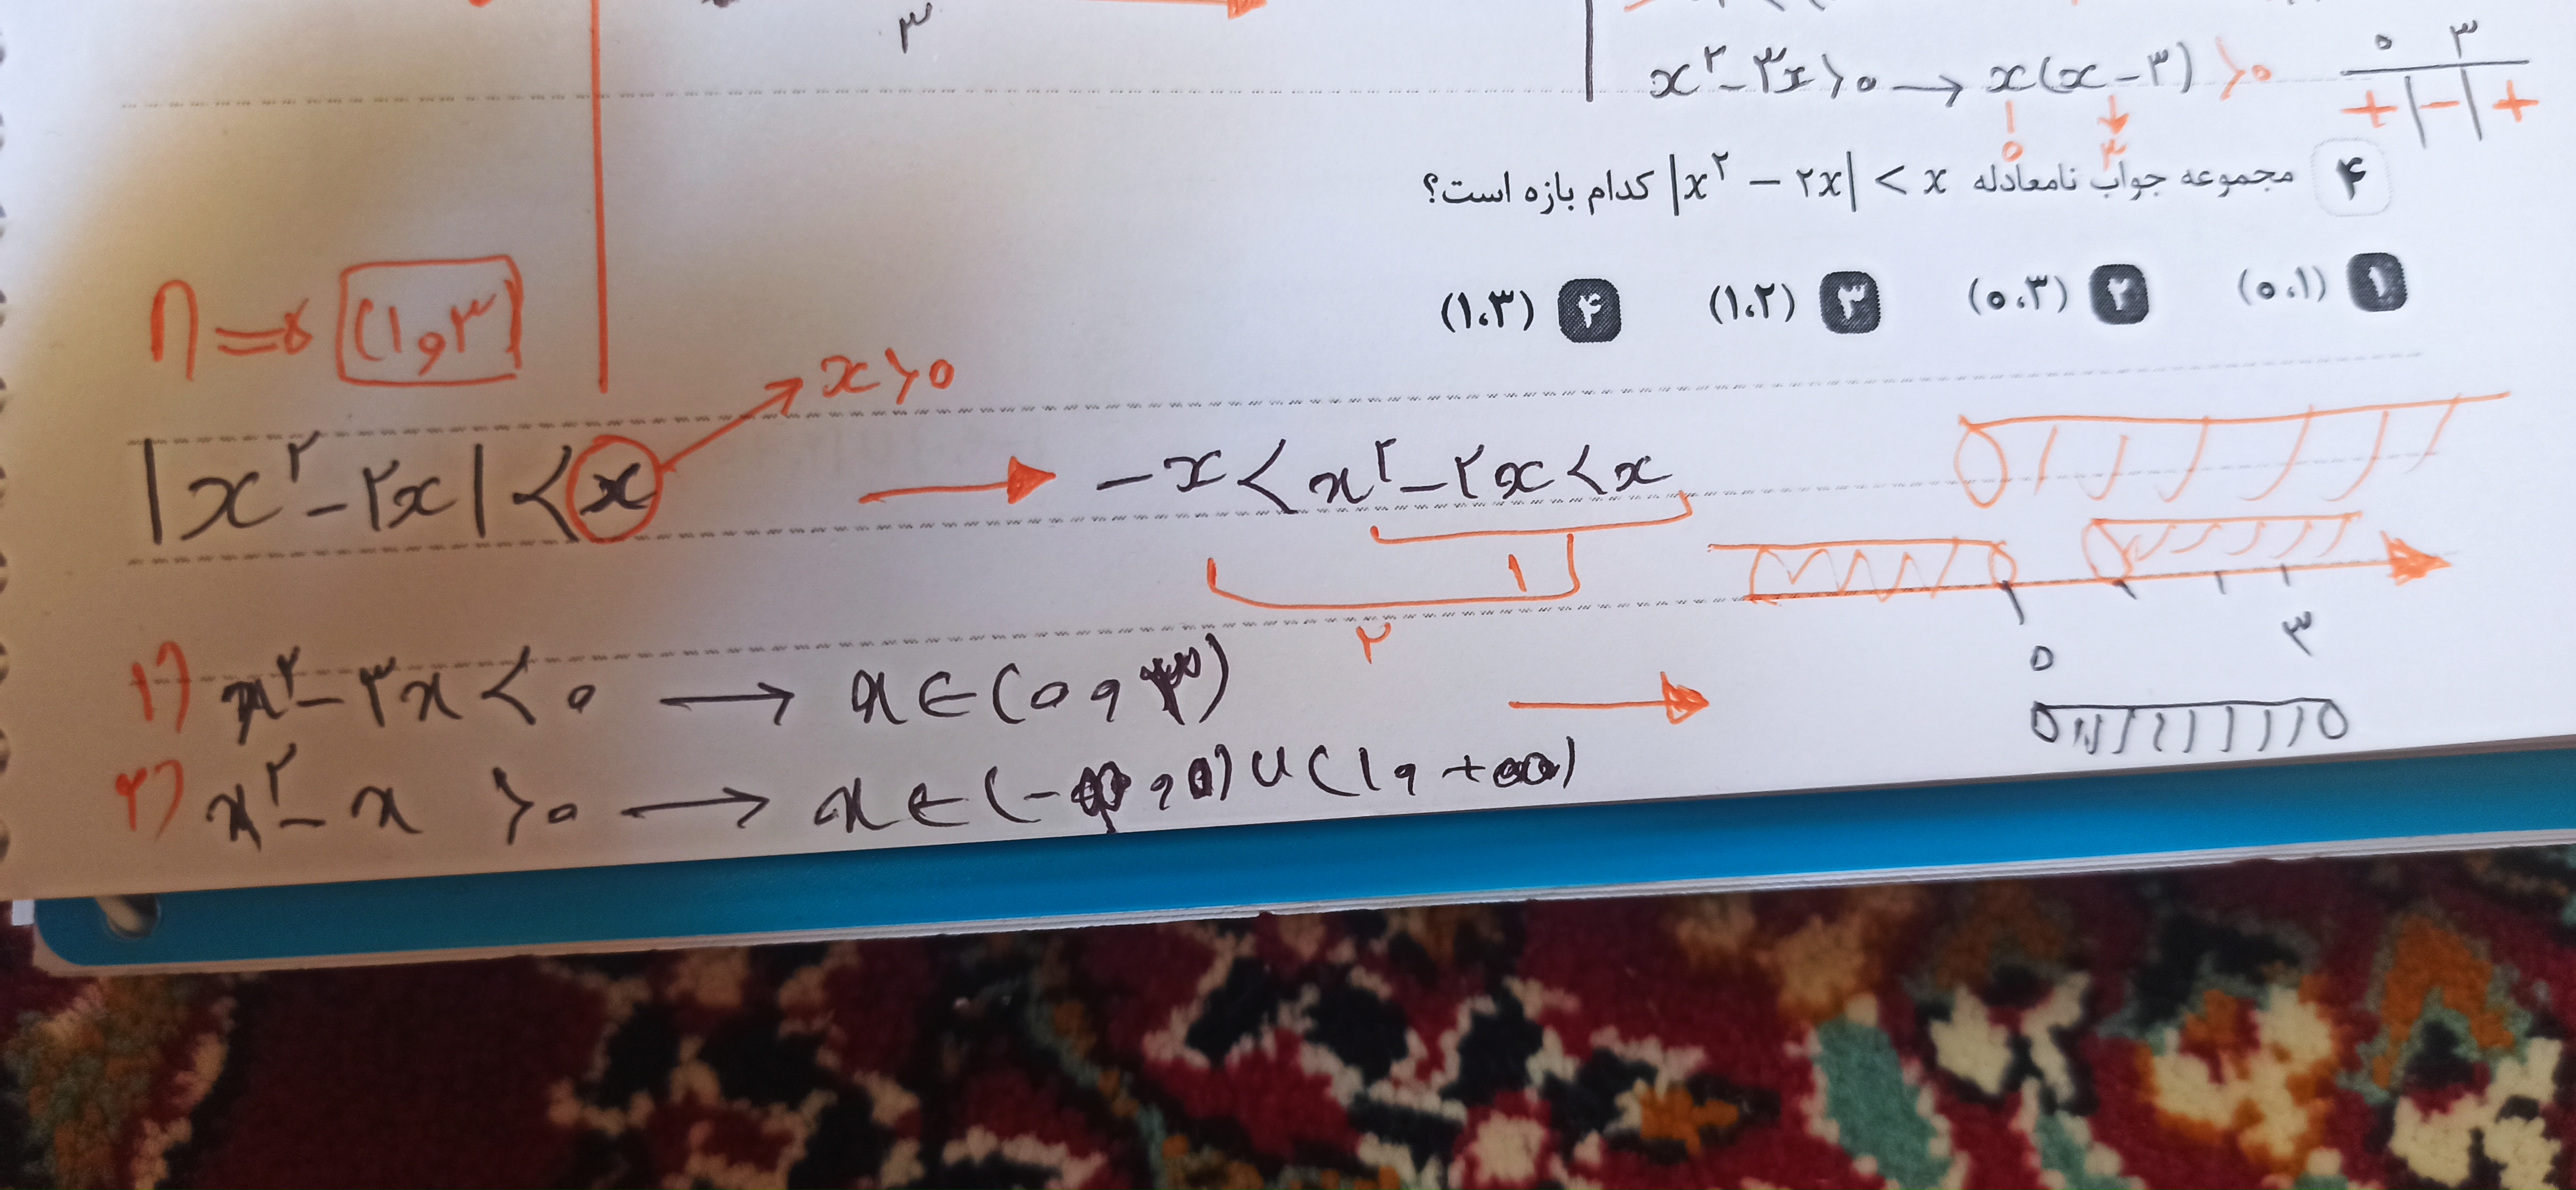 ۳
x² - ۳x > ۰ → x(x - ۳) > ۰
۰ ۳
+ | - | +
۰ ۳
۴ مجموعه جواب نامعادله |x² - ۲x| < x کدام بازه است؟
۱ (۰،۱) ۲ (۰،۳) ۳ (۱،۲) ۴ (۱،۳)
∩ ⇒ (۱ و ۳)
x > ۰
|x² - ۲x| < x → -x < x² - ۲x < x
۱
۲
۰ ۳
۱) x² - ۳x < ۰ → x ∈ (۰ و ۳)
۲) x² - x > ۰ → x ∈ (-∞ و ۰) ∪ (۱ و +∞)